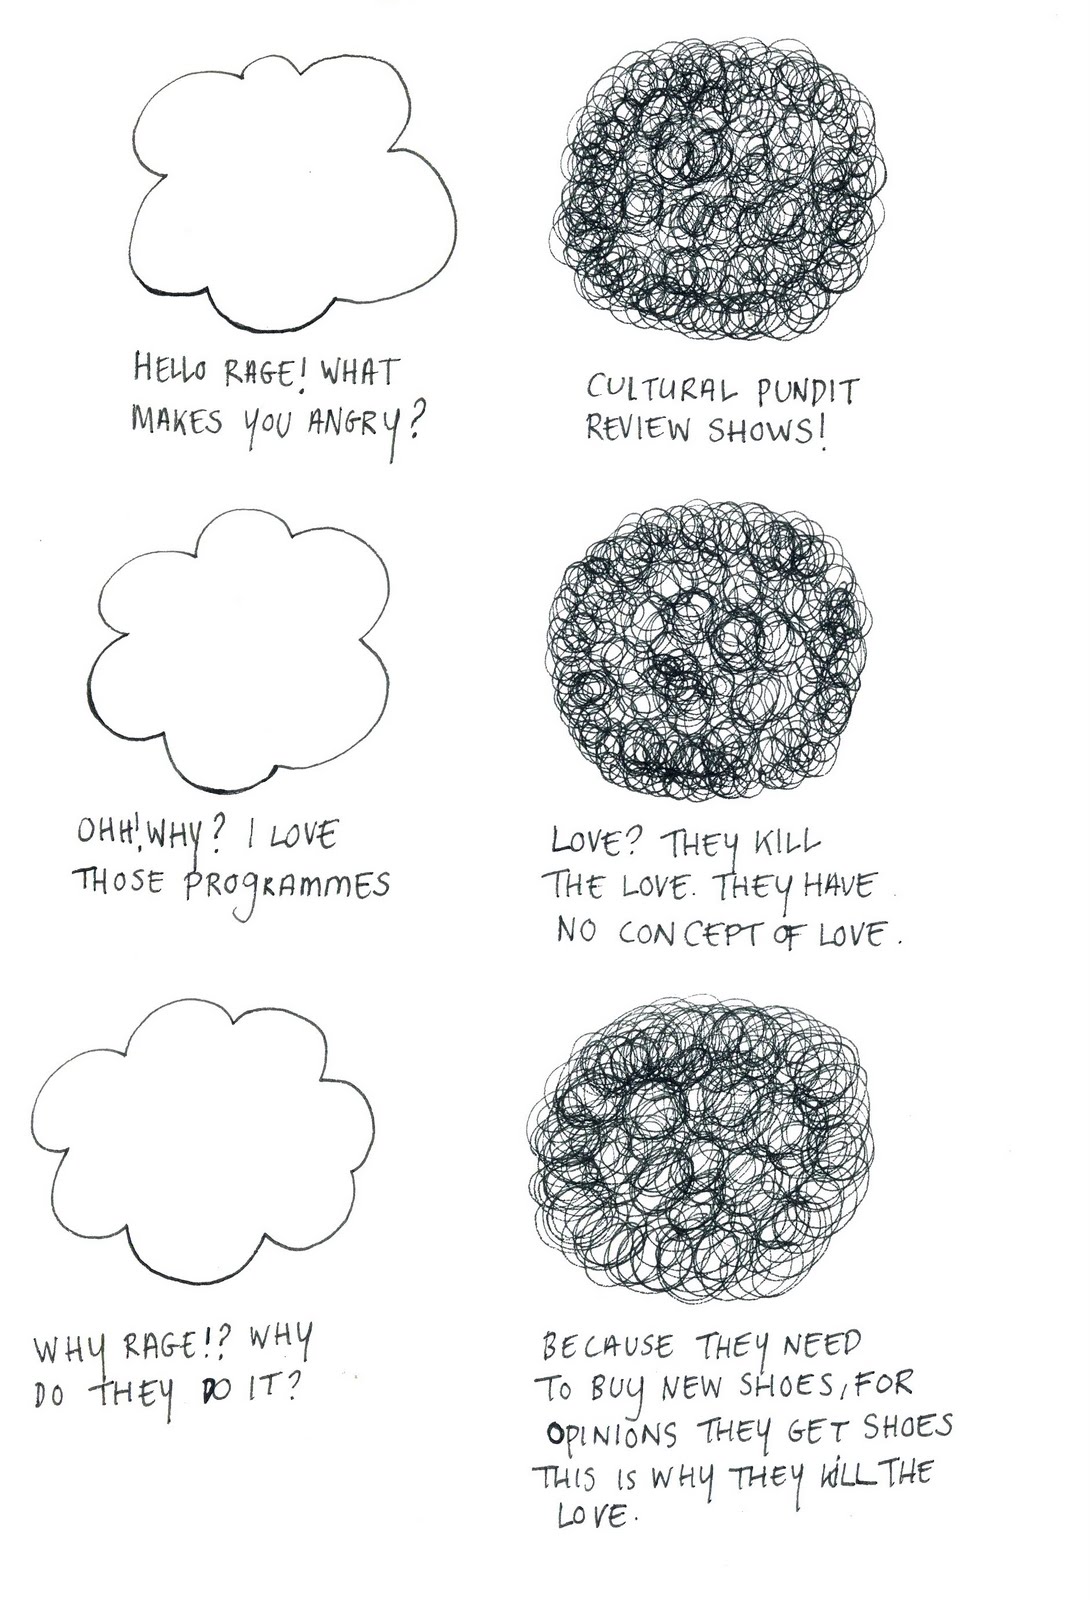 HELLO RAGE! WHAT
MAKES YOU ANGRY?
CULTURAL PUNDIT
REVIEW SHOWS!
OHH! WHY? I LOVE
THOSE PROgRAMMES
LOVE? THEY KILL
THE LOVE. THEY HAVE
NO CONCEPT OF LOVE.
WHY RAGE!? WHY
DO THEY DO IT?
BECAUSE THEY NEED
TO BUY NEW SHOES, FOR
OPINIONS THEY GET SHOES
THIS IS WHY THEY KILL THE
LOVE.